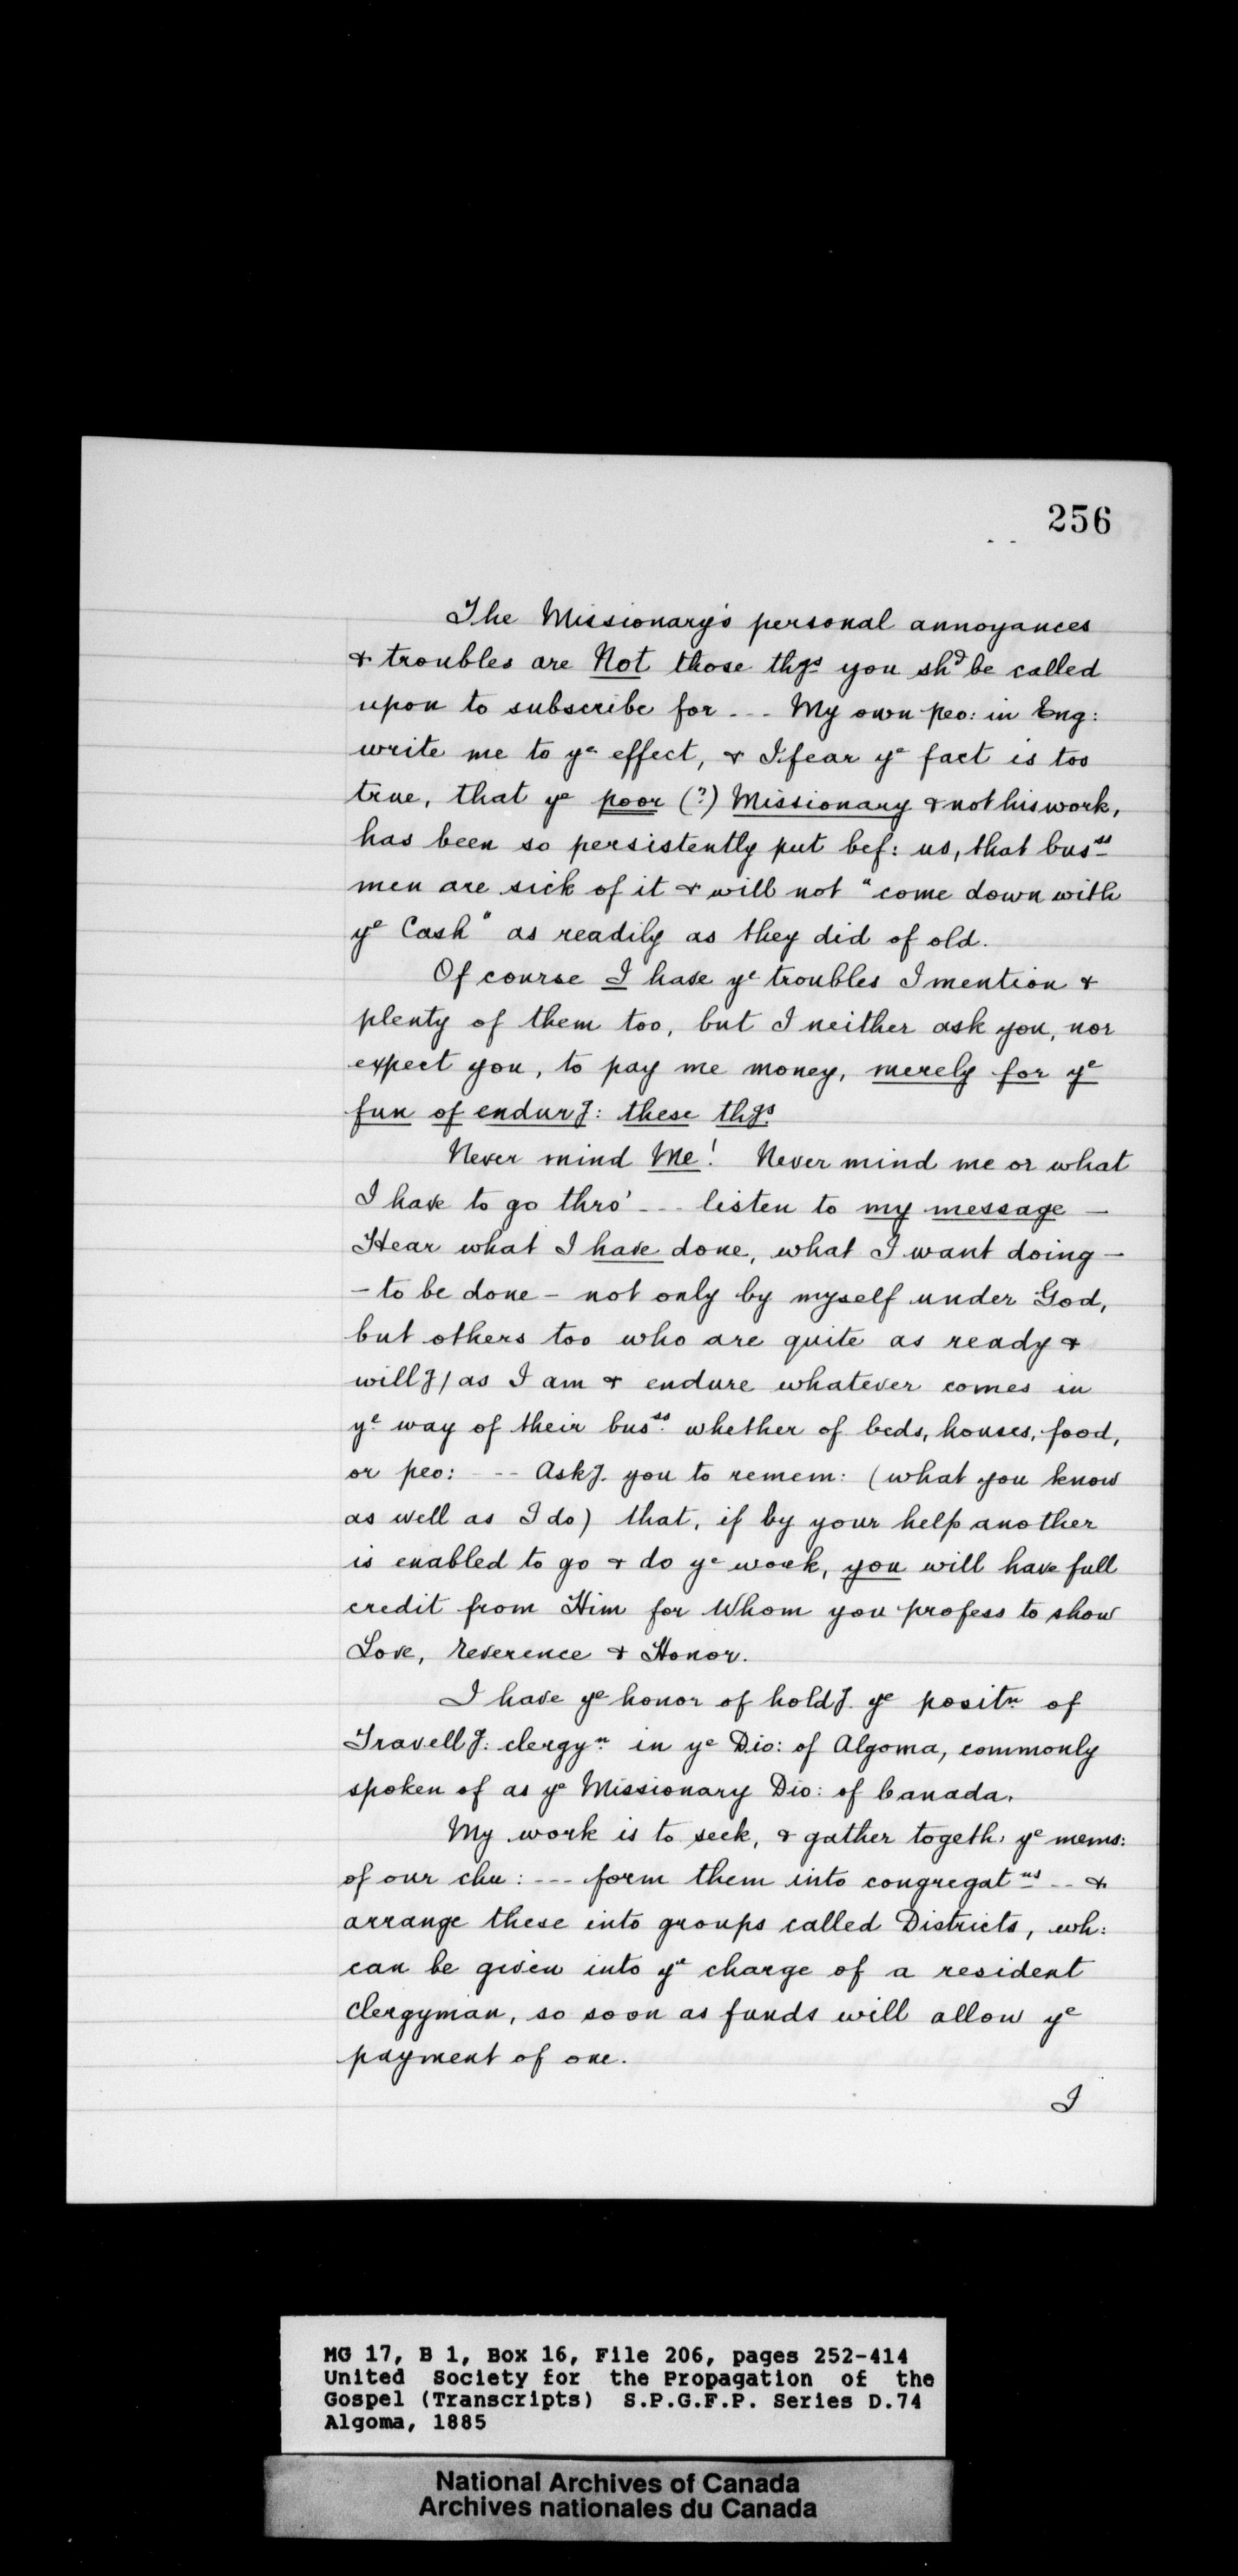 256
The Missionary's personal annoyances
& troubles are Not those thgs you shd be called
upon to subscribe for --- My own peo: in Eng:
write me to ye effect, & I fear ye fact is too
true, that ye poor (?) Missionary & not his work,
has been so persistently put bef: us, that busss
men are sick of it & will not "come down with
ye Cash" as readily as they did of old.
Of course I have ye troubles I mention &
plenty of them too, but I neither ask you, nor
expect you, to pay me money, merely for ye
fun of endurg: these thgs.
Never mind Me! Never mind me or what
I have to go thro' --- listen to my message —
Hear what I have done, what I want doing —
— to be done — not only by myself under God,
but others too who are quite as ready &
willg) as I am & endure whatever comes in
ye way of their busss. whether of beds, houses, food,
or peo: --- Askg. you to remem: (what you know
as well as I do) that, if by your help another
is enabled to go & do ye work, you will have full
credit from Him for Whom you profess to show
Love, Reverence & Honor.
I have ye honor of holdg. ye positn of
Travellg: clergyn in ye Dio: of Algoma, commonly
spoken of as ye Missionary Dio: of Canada.
My work is to seek, & gather togeth: ye mems:
of our chu: --- form them into congregatns -- &
arrange these into groups called Districts, wh:
can be given into ye charge of a resident
Clergyman, so soon as funds will allow ye
payment of one.
I
MG 17, B 1, Box 16, File 206, pages 252-414
United Society for the Propagation of the
Gospel (Transcripts) S.P.G.F.P. Series D.74
Algoma, 1885
National Archives of Canada
Archives nationales du Canada